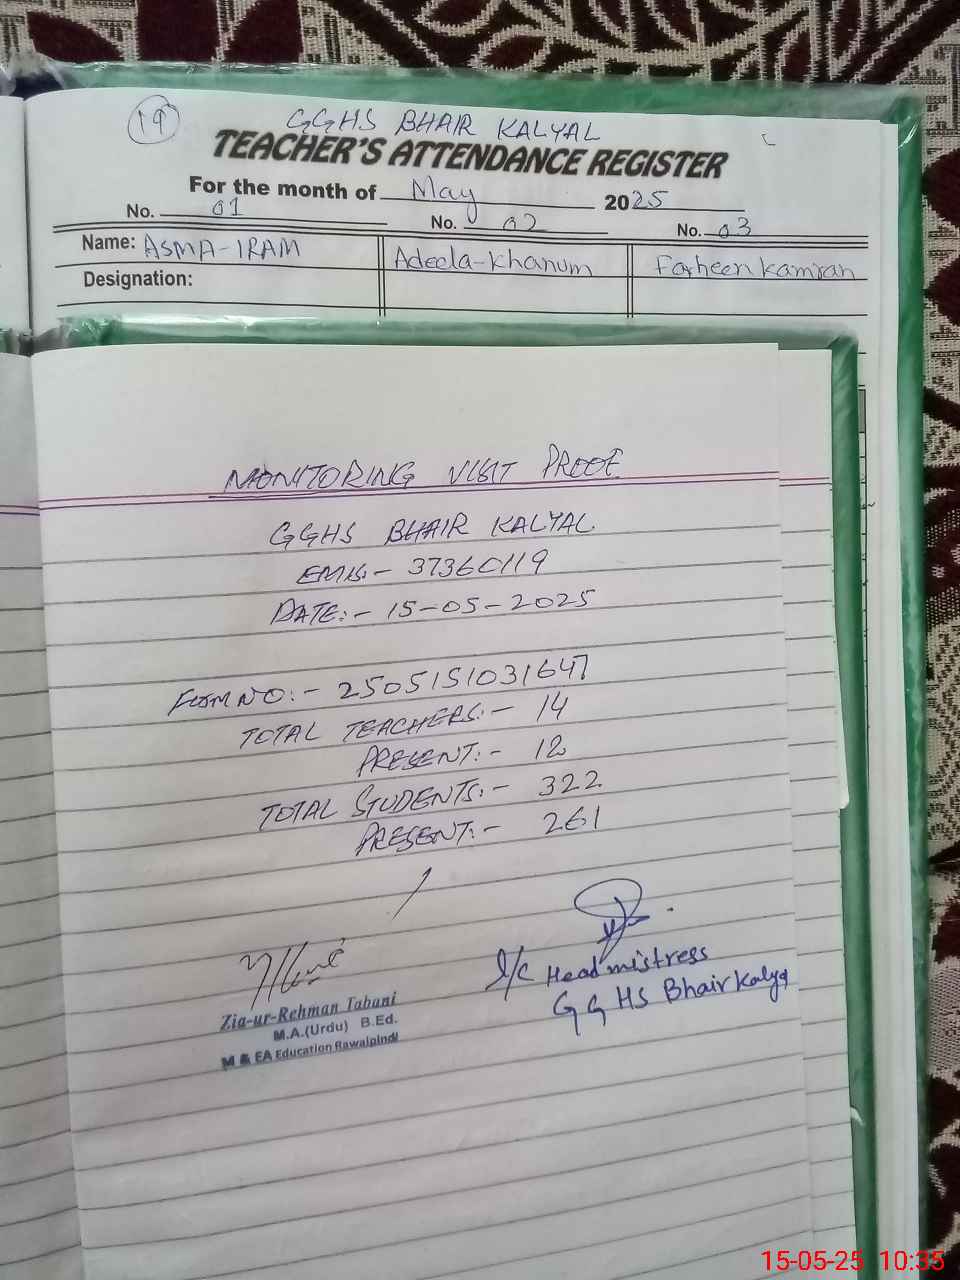 19
GGHS BHAIR KALYAL
TEACHER'S ATTENDANCE REGISTER
For the month of May 2025
No. 01 No. 02 No. 03
Name: ASMA-IRAM Adeela-Khanum Farheen Kamran
Designation:
MONITORING VISIT PROOF
GGHS BHAIR KALYAL
EMIS:- 37360119
DATE:- 15-05-2025
FORM NO:- 2505151031647
TOTAL TEACHERS:- 14
PRESENT:- 12
TOTAL STUDENTS:- 322
PRESENT:- 261
I/C Headmistress
GGHS Bhair Kalya
Zia-ur-Rehman Tabani
M.A.(Urdu) B.Ed.
M & EA Education Rawalpindi
15-05-25 10:35